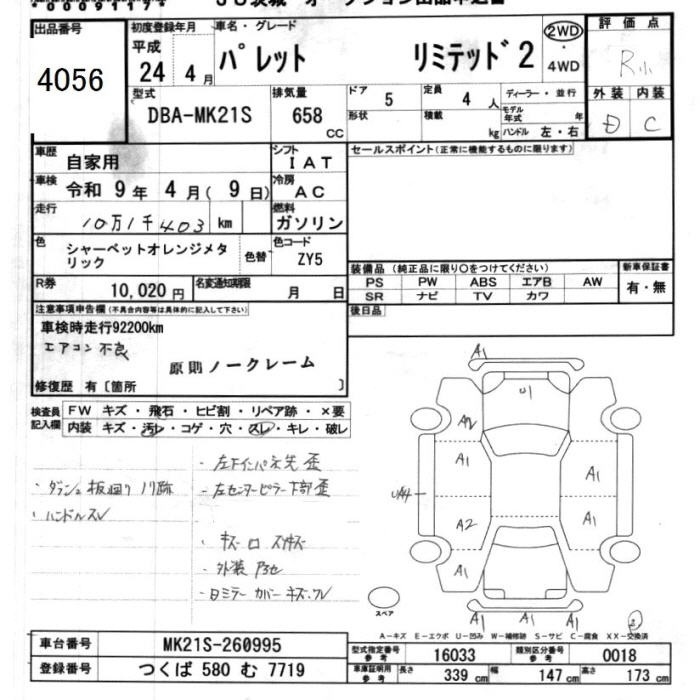 出品番号
4056
初度登録年月
平成
24 4月
車名・グレード
パレット リミテッド2
2WD
・
4WD
評価点
R
型式
DBA-MK21S
排気量
658 CC
ドア 5
形状
定員 4 人
積載 kg
ディーラー・並行
モデル年式 年
ハンドル 左・右
外装 内装
D C
車歴
自家用
シフト
IAT
車検
令和 9年 4月(9日)
冷房
AC
走行
10万1千403 km
燃料
ガソリン
色
シャーベットオレンジメタリック
色替
色コード
ZY5
R券
10,020円
名変通知期限
月 日
セールスポイント(正常に機能するものに限ります)
装備品(純正品に限り○をつけてください)
PS PW ABS エアB AW
SR ナビ TV カワ
新車保証書
有・無
後日品
注意事項申告欄(不具合内容等は具体的に記入して下さい)
車検時走行92200km
エアコン不良
原則ノークレーム
修復歴 有〔箇所 〕
検査員記入欄
FW キズ・飛石・ヒビ割・リペア跡・×要
内装 キズ・汚レ・コゲ・穴・スレ・キレ・破レ
・左下インパネ先歪
・ダッシュ板廻りノリ跡
・左センターピラー下部歪
・ハンドルスレ
・外装
・日ミラーカバーキズ、ワレ
A1
U1
A2
A1
A1
UA4
A2
A1
A1
A1 A1 A1
スペア
A−キズ E−エクボ U−凹み W−補修跡 S−サビ C−腐食 XX−交換済
車台番号
MK21S-260995
登録番号
つくば 580 む 7719
型式指定番号
参考
16033
類別区分番号
参考
0018
車庫証明用
参考
長さ 339 cm
幅 147 cm
高さ 173 cm